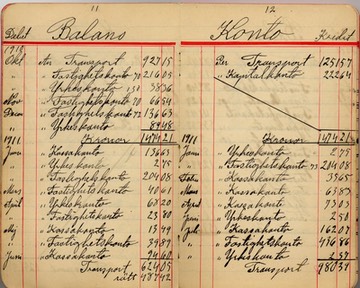 11
Debit Balans
1910
Okt An Transport 927 15
" Fastighetskonto 70 216 05
" Yrkeskonto 38 36
Nov " Fastighetskonto 70 66 54
" Fastighetskonto 72 136 63
" Yrkeskonto 89 48
1911 Kronor 1474 21
Janu " Kassakonto 136 63
" Yrkeskonto 2 75
" Fastighetskonto 204 08
Mars " Fastighetskonto 40 61
April " Yrkeskonto 63 20
" Fastighetskonto 23 80
Maj " Kassakonto 13 49
" Fastighetskonto 34 89
Juni " Kassakonto 94 60
Transport 624 05
12
Konto Kredit
Per Transport 1251 57
" Kapitalkonto 222 64
1911 Kronor 1474 21
Janu " Yrkeskonto 2 75
" Fastighetskonto 73 214 08
Feb " Kassakonto 35 65
Mars " Kassakonto 63 83
April " Kassakonto 73 03
Juni " Yrkeskonto 2 50
Juli " Kassakonto 162 07
" Fastighetskonto 436 86
" Yrkeskonto 2 37
Transport 980 39